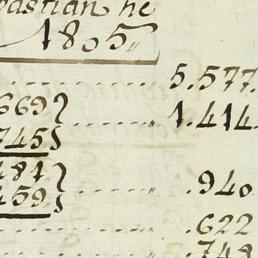 bastian he
1805
5.577.
669}
745} 1.414
481}
459} .940
.622
.748